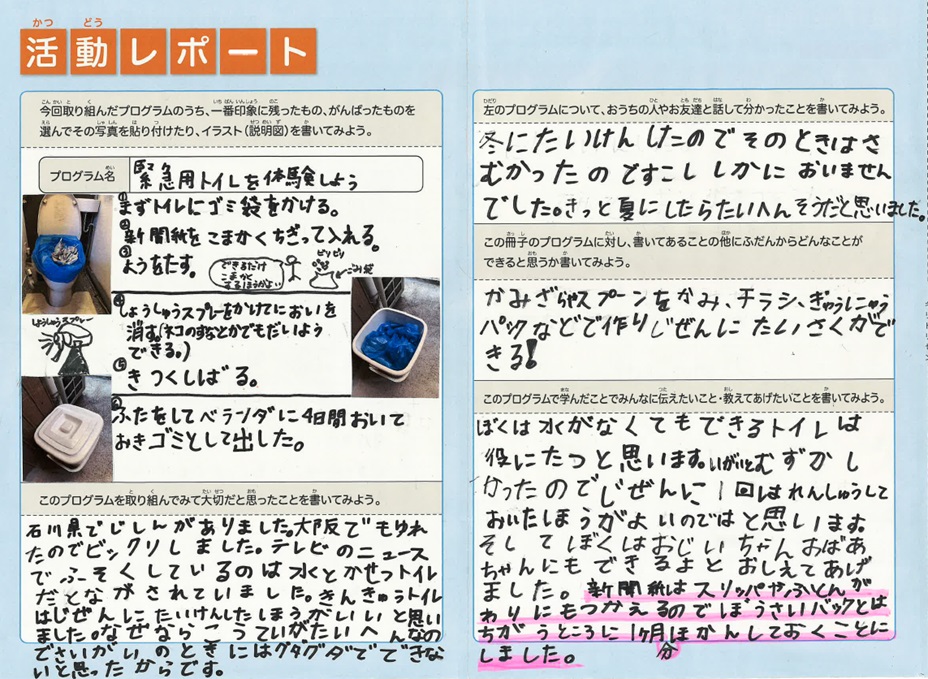 活動レポート
今回取り組んだプログラムのうち、一番印象に残ったもの、がんばったものを
選んでその写真を貼り付けたり、イラスト(説明図)を書いてみよう。
プログラム名
緊急用トイレを体験しよう
①まずトイレにゴミ袋をかける。
②新聞紙をこまかくちぎって入れる。
③ようをたす。
できるだけ
こまかく
するほうがよい
ビリビリ
ごみ袋
④しょうしゅうスプレーをかけてにおいを
消す。(ネコのすなとかでもだいよう
できる。)
しょうしゅうスプレー
⑤きつくしばる。
⑥ふたをしてベランダに4日間おいて
おきゴミとして出した。
このプログラムを取り組んでみて大切だと思ったことを書いてみよう。
石川県でじしんがありました。大阪でもゆれ
たのでビックリしました。テレビのニュース
でふそくしているのは水とかせつトイレ
だとながされていました。きんきゅうトイレ
はじぜんにたいけんしたほうがいいと思い
ました。なぜなら いがいたいへんなの
でさいがいのときにはグダグダでできな
いと思ったからです。
左のプログラムについて、おうちの人やお友達と話して分かったことを書いてみよう。
冬にたいけんしたのでそのときはさ
むかったのですこししかにおいません
でした。きっと夏にしたらたいへんそうだと思いました。
この冊子のプログラムに対し、書いてあることの他にふだんからどんなことが
できると思うか書いてみよう。
かみざらやスプーンをかみ、チラシ、ぎゅうにゅう
パックなどで作りじぜんにたいさくがで
きる!
このプログラムで学んだことでみんなに伝えたいこと・教えてあげたいことを書いてみよう。
ぼくは水がなくてもできるトイレは
役にたつと思います。いがいとむずかし
かったのでじぜんに1回はれんしゅうして
おいたほうがよいのではと思います。
そしてぼくはおじいちゃんおばあ
ちゃんにもできるよとおしえてあげ
ました。新聞紙はスリッパやふとんが
わりにもつかえるのでぼうさいバックとは
ちがうところに1ヶ月分ほかんしておくことに
しました。